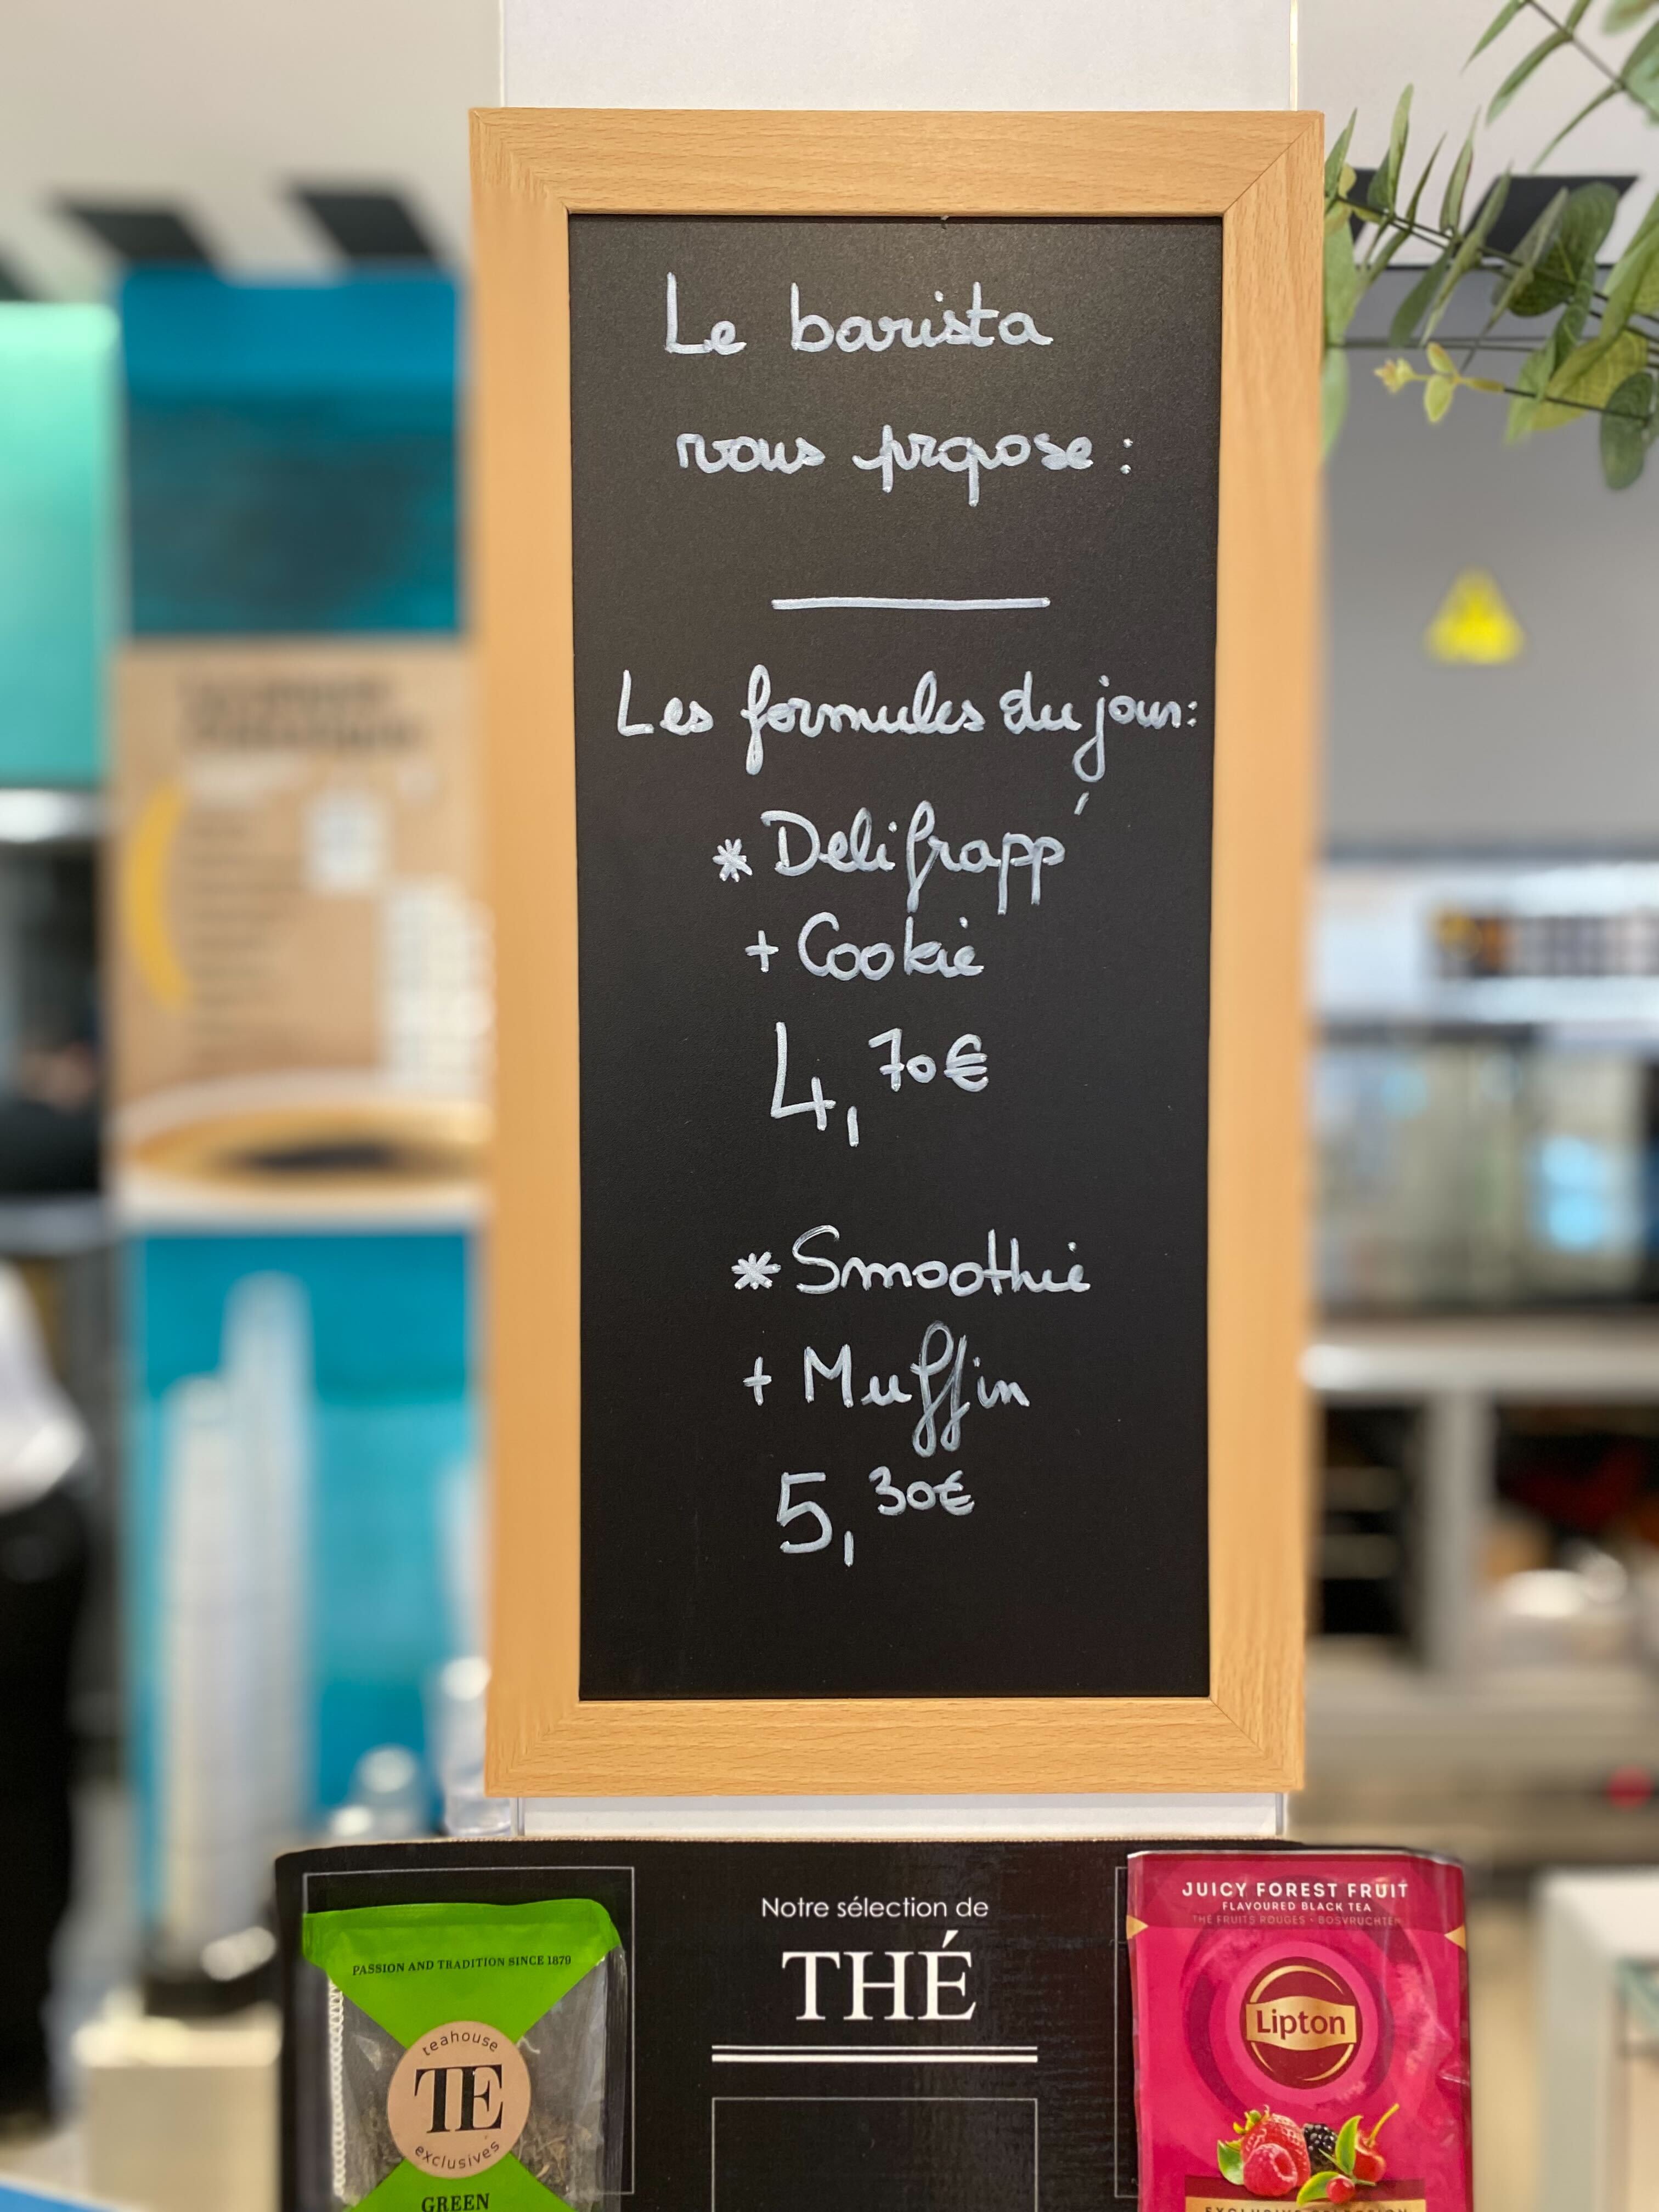 Le barista
vous propose :
Les formules du jour:
* Delifrapp'
+ Cookie
4,70€
* Smoothie
+ Muffin
5,30€
Notre sélection de
THÉ
PASSION AND TRADITION SINCE 1879
teahouse
TE
exclusives
GREEN
JUICY FOREST FRUIT
FLAVOURED BLACK TEA
THÉ FRUITS ROUGES • BOSVRUCHTEN
Lipton